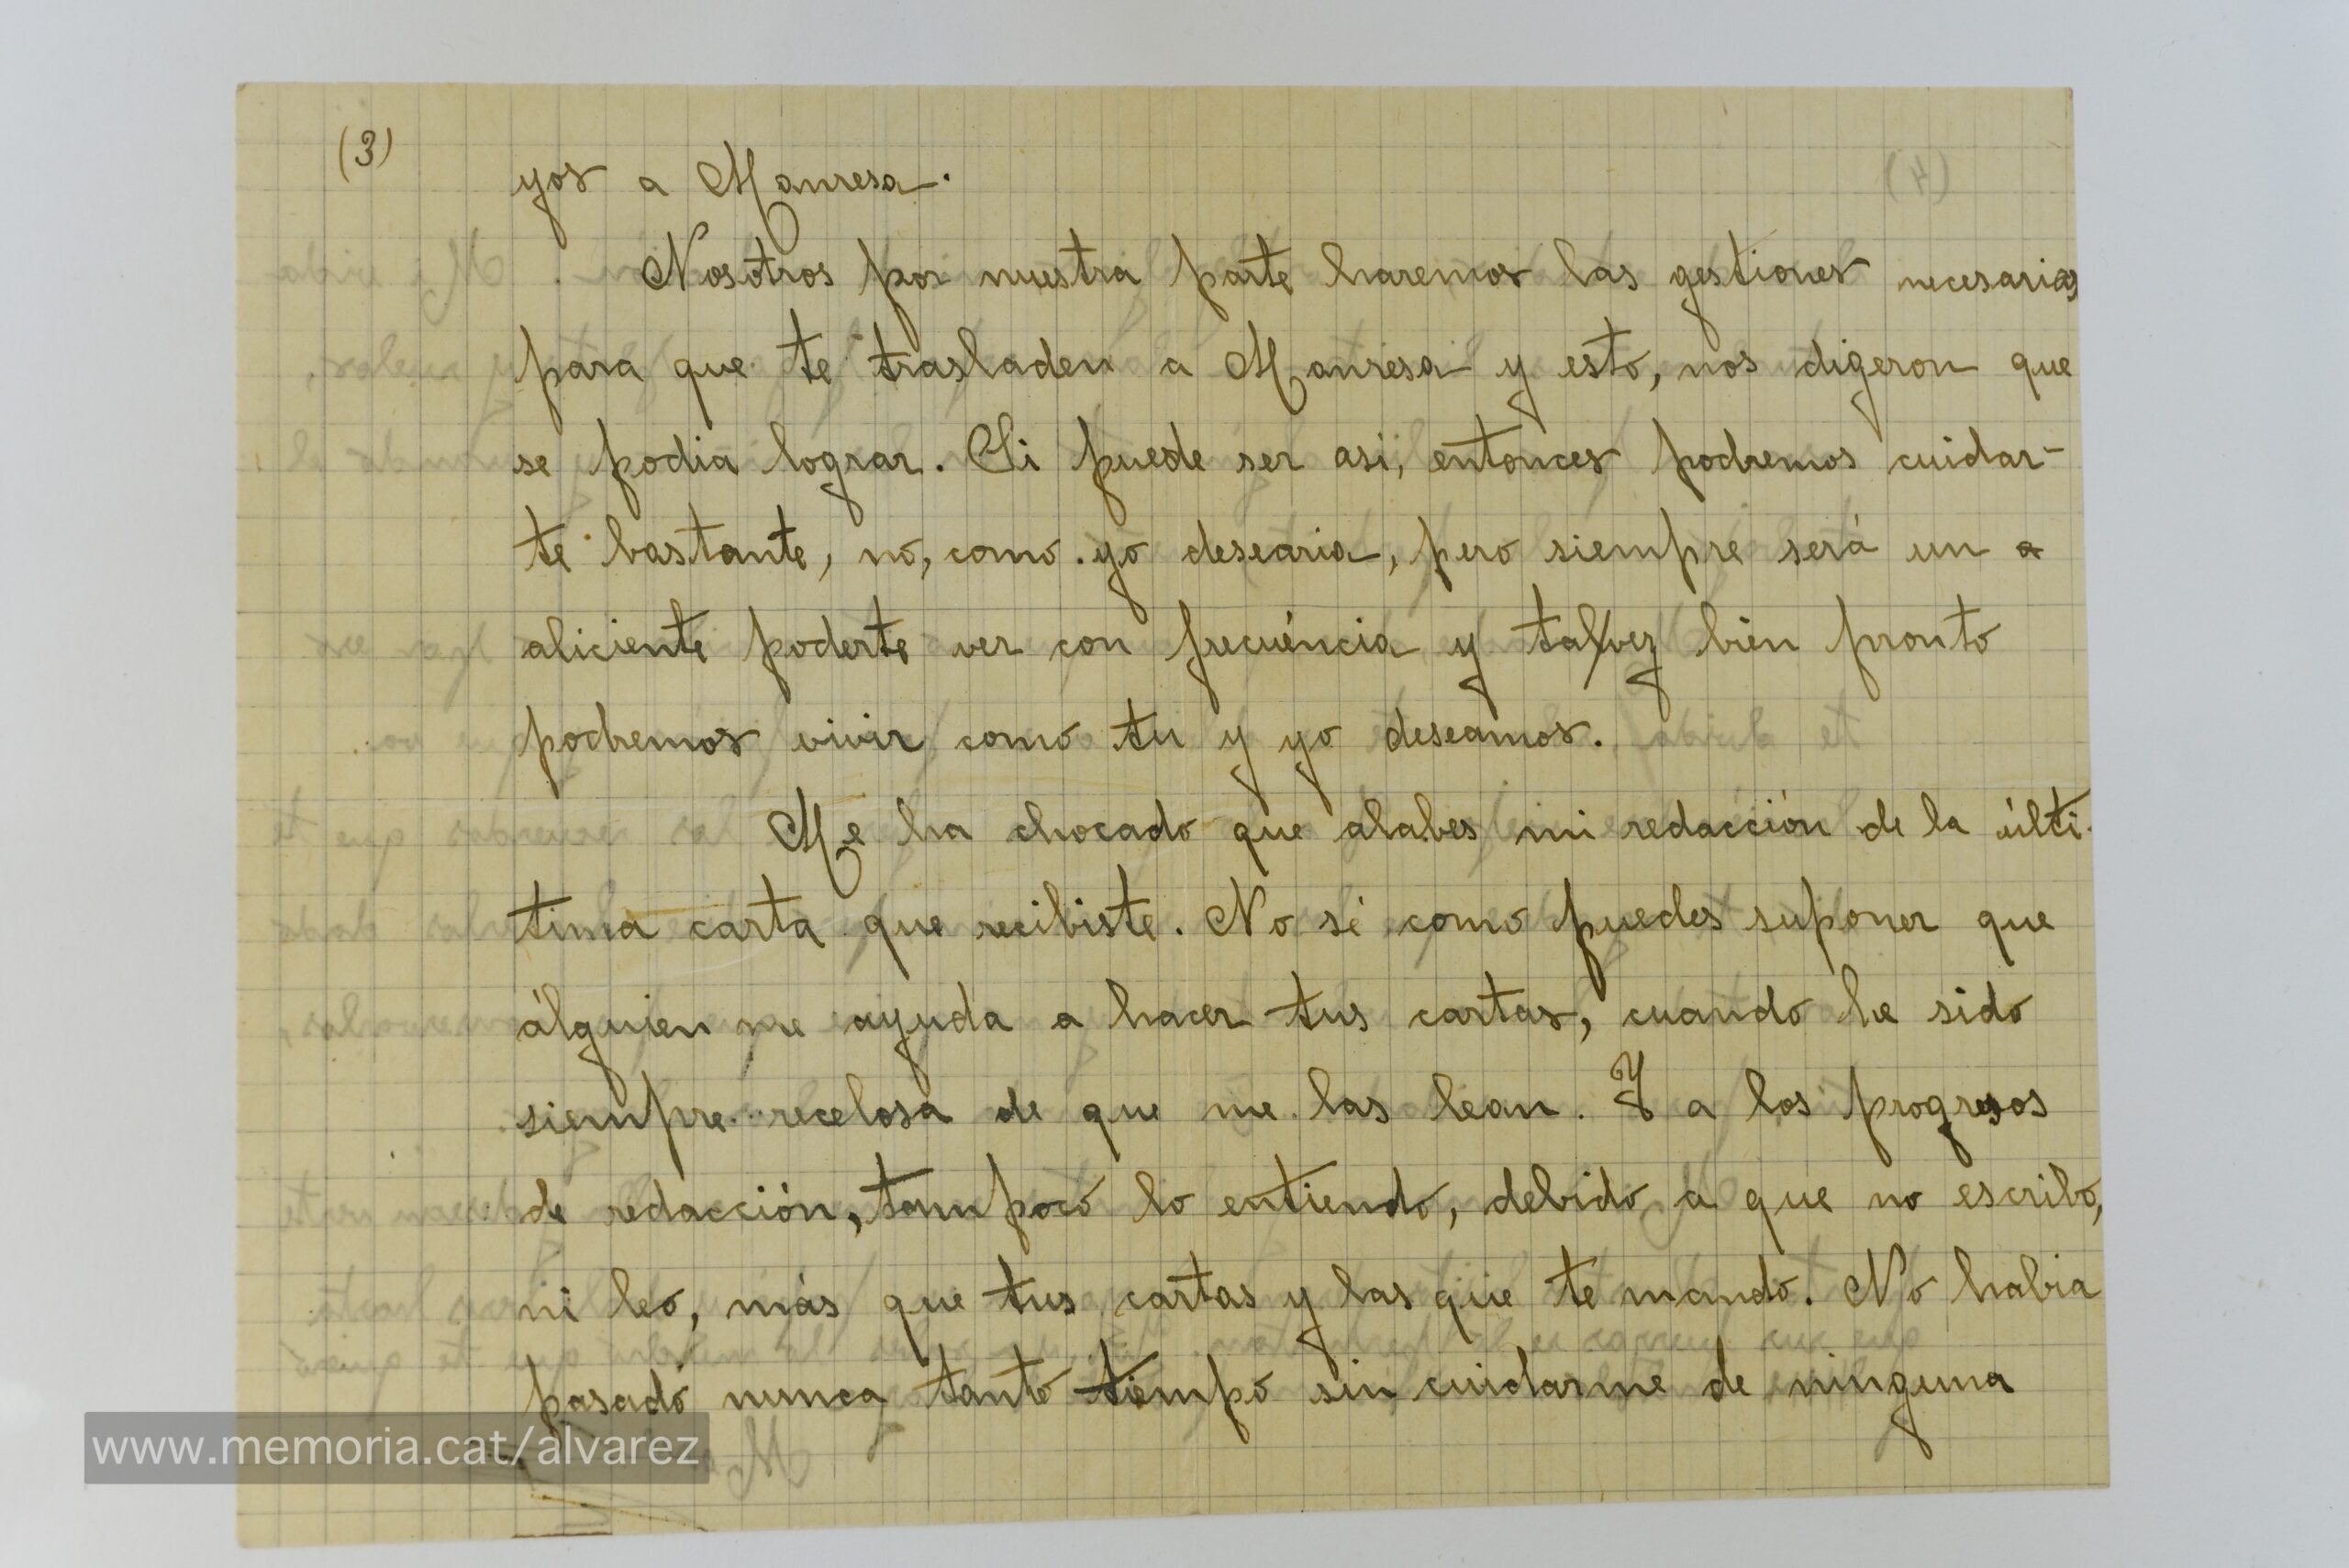 (3)
yos a Manresa.
Nosotros por nuestra parte haremos las gestiones necesarias
para que te trasladen a Manresa y esto, nos digeron que
se podia lograr. Si puede ser asi, entonces podremos cuidar-
te bastante, no, como yo desearia, pero siempre será un a
aliciente poderte ver con frecuéncia y tal/vez bien pronto
podremos vivir como tu y yo deseamos.
Me ha chocado que alabes mi redacción de la últi-
tima carta que recibiste. No sé como puedes suponer que
álguien me ayuda a hacer tus cartas, cuando he sido
siempre recelosa de que me las lean. Y a los progresos
de redacción, tampoco lo entiendo, debido a que no escribo,
ni leo, más que tus cartas y las que te mando. No habia
pasado nunca tanto tiempo sin cuidarme de ninguna
www.memoria.cat/alvarez